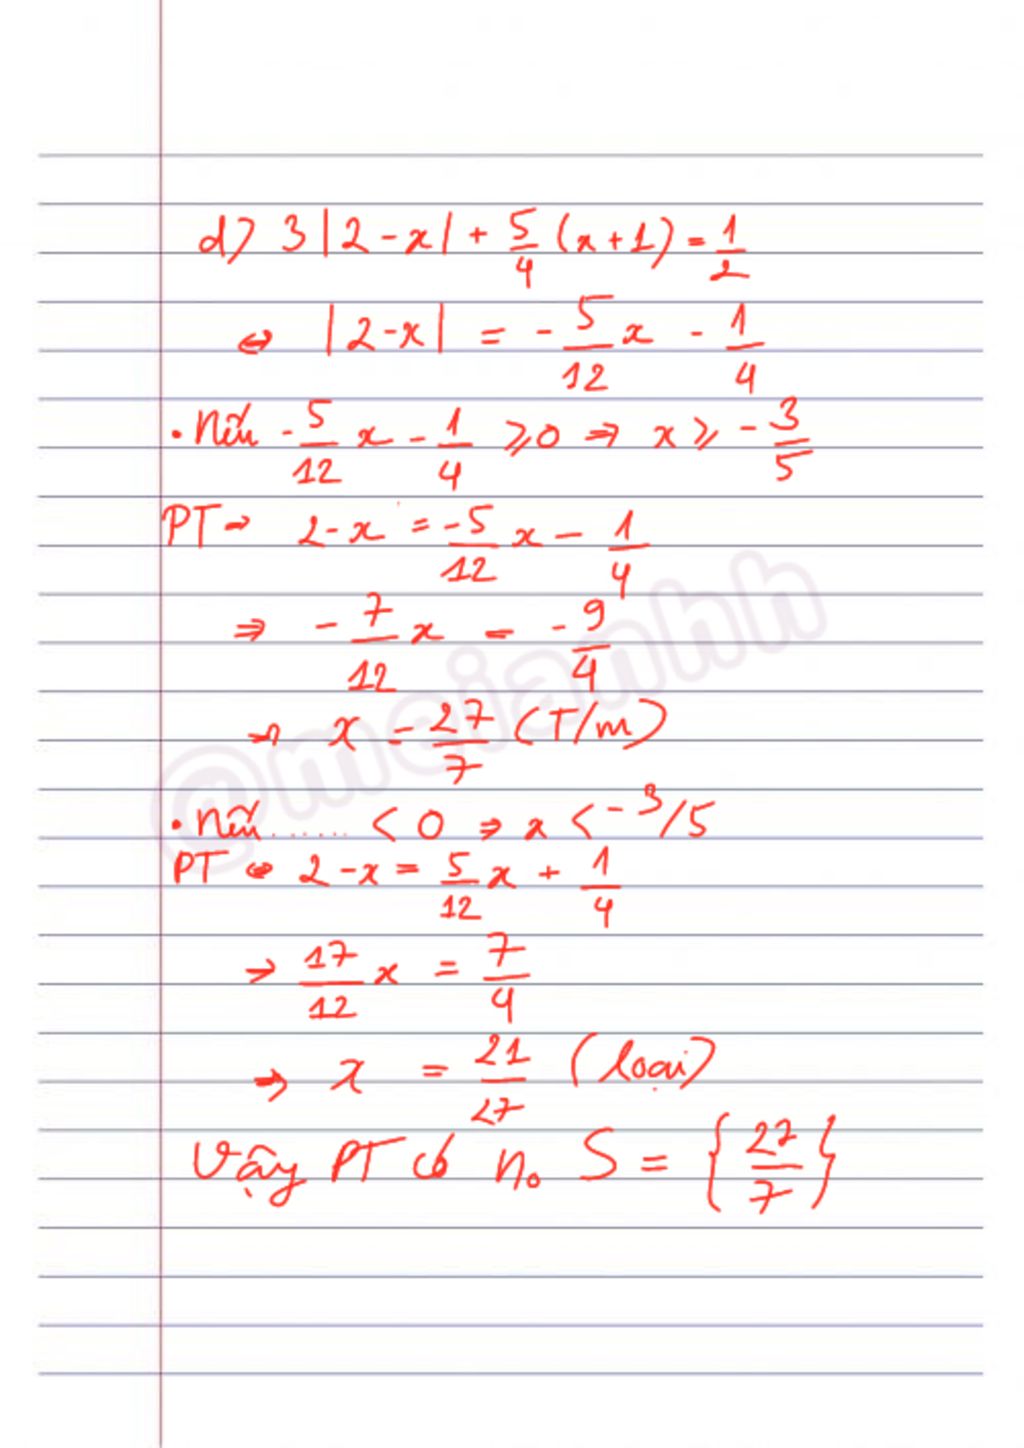 d) 3|2-x| + 5/4 (x+1) = 1/2
⇔ |2-x| = -5/12 x - 1/4
• Nếu -5/12 x - 1/4 ⩾ 0 ⇒ x ⩾ -3/5
PT → 2-x = -5/12 x - 1/4
⇒ -7/12 x = -9/4
→ x = 27/7 (T/m)
@meianhh
• Nếu ...... < 0 ⇒ x < -3/5
PT ⇔ 2-x = 5/12 x + 1/4
→ 17/12 x = 7/4
→ x = 21/27 (loại)
Vậy PT có no S = {27/7}